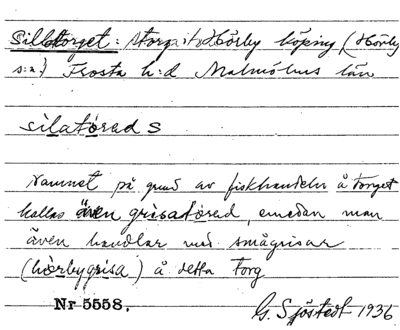 Silletorget: Storg. i Hörby köping (Hörby
s:n) Frosta h:d Malmöhus län
silatorad s
Namnet på grund av fiskhandeln å torget
kallas även grisatorad, emedan man
även handlar med smågrisar
(hörbygrisa) å detta torg
Nr 5558.
G. Sjöstedt 1936